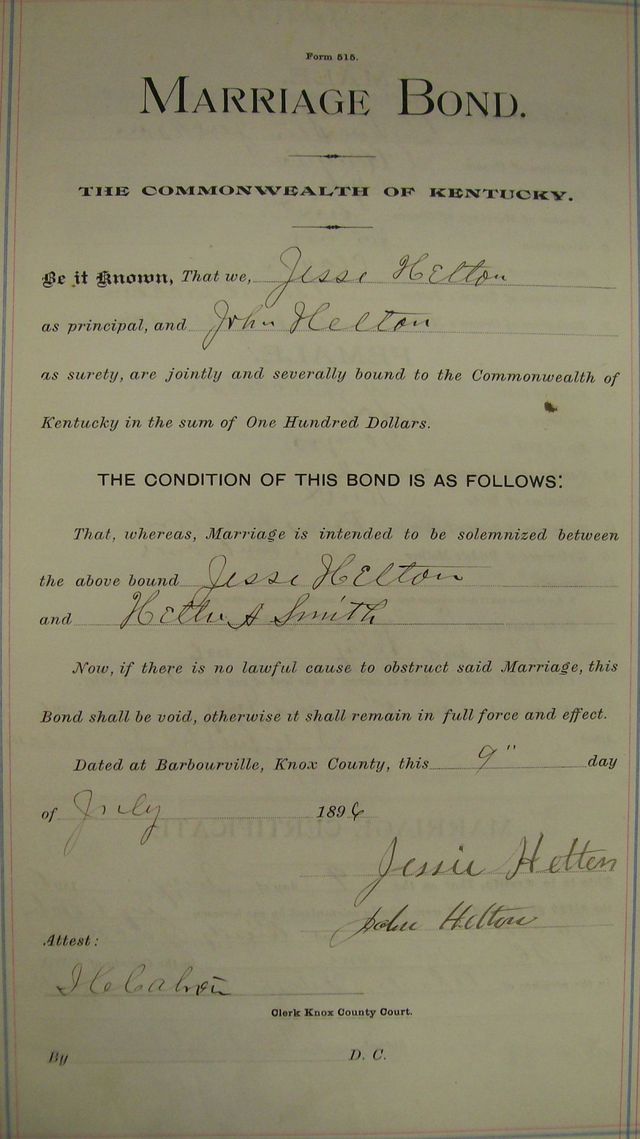 Form 515.
MARRIAGE BOND.
THE COMMONWEALTH OF KENTUCKY.
Be it Known, That we, Jesse Helton
as principal, and John Helton
as surety, are jointly and severally bound to the Commonwealth of
Kentucky in the sum of One Hundred Dollars.
THE CONDITION OF THIS BOND IS AS FOLLOWS:
That, whereas, Marriage is intended to be solemnized between
the above bound Jesse Helton
and A Smith
Now, if there is no lawful cause to obstruct said Marriage, this
Bond shall be void, otherwise it shall remain in full force and effect.
Dated at Barbourville, Knox County, this 9" day
of July 1896
Jessie Helton
John Helton
Attest:
Clerk Knox County Court.
By D. C.